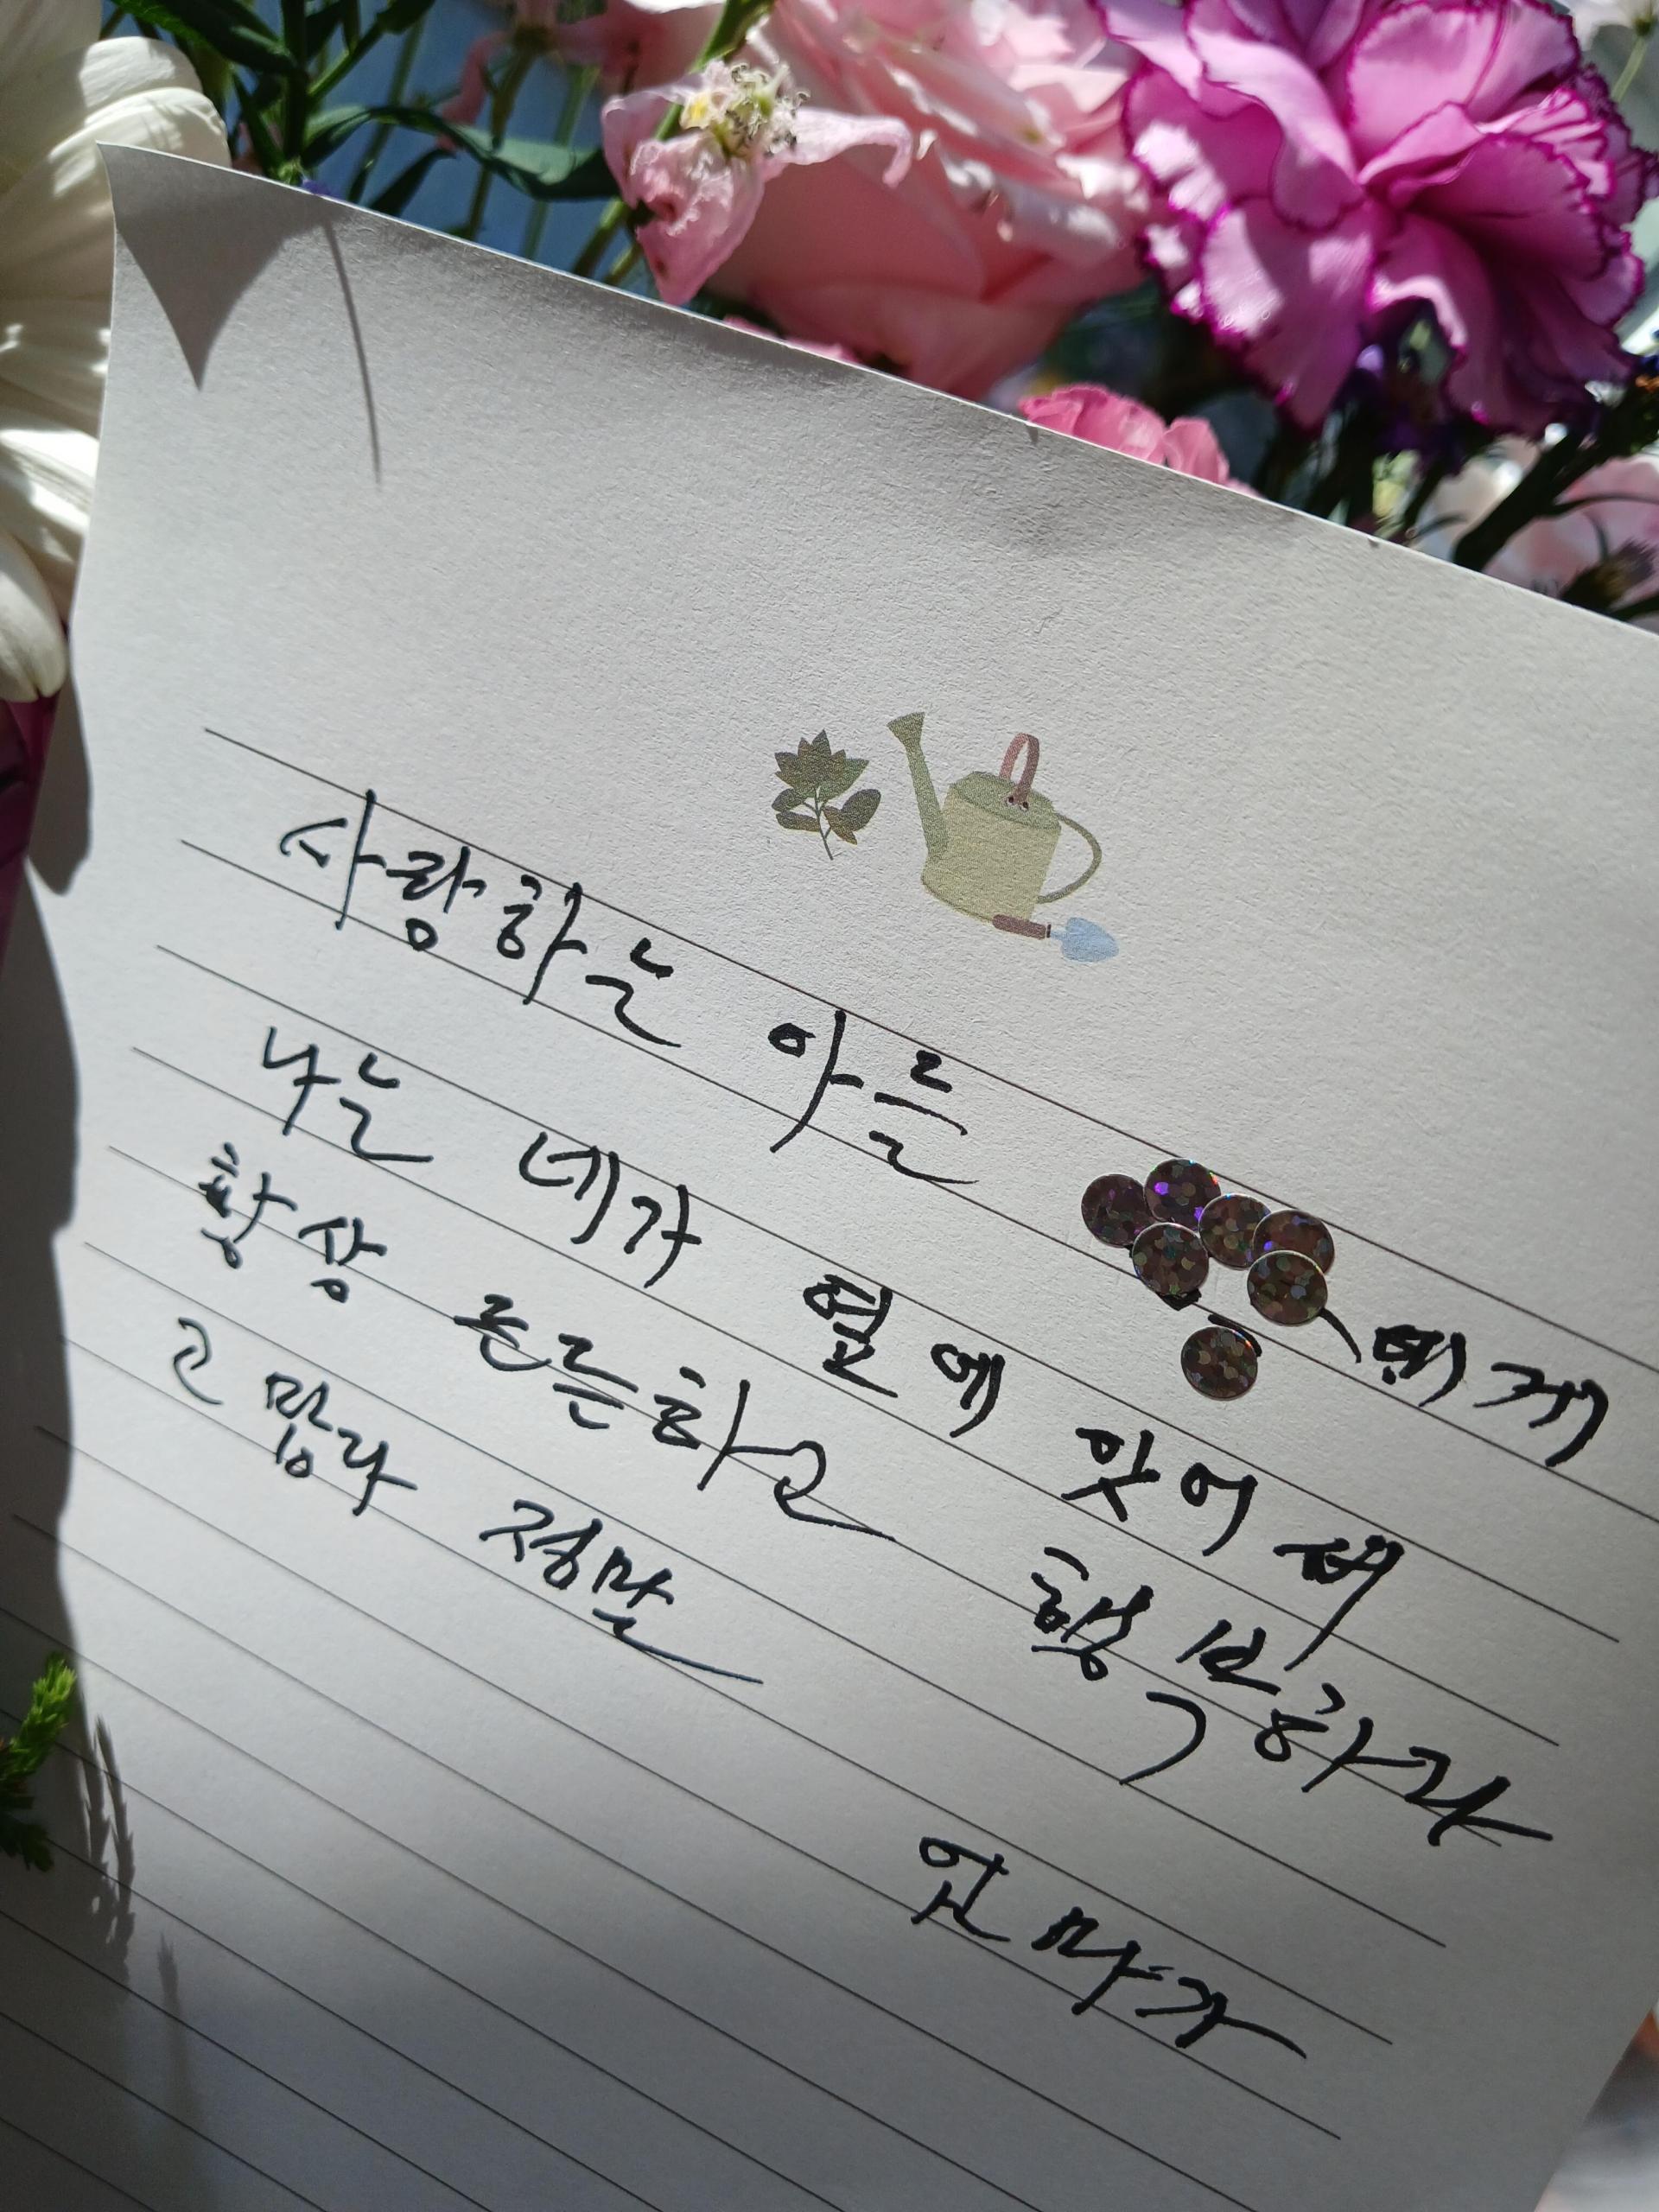 사랑하는 아를 벤게
나는 네가 옆에 있어서
항상 든든하고 행복하다
고맙다 정말
엄마가